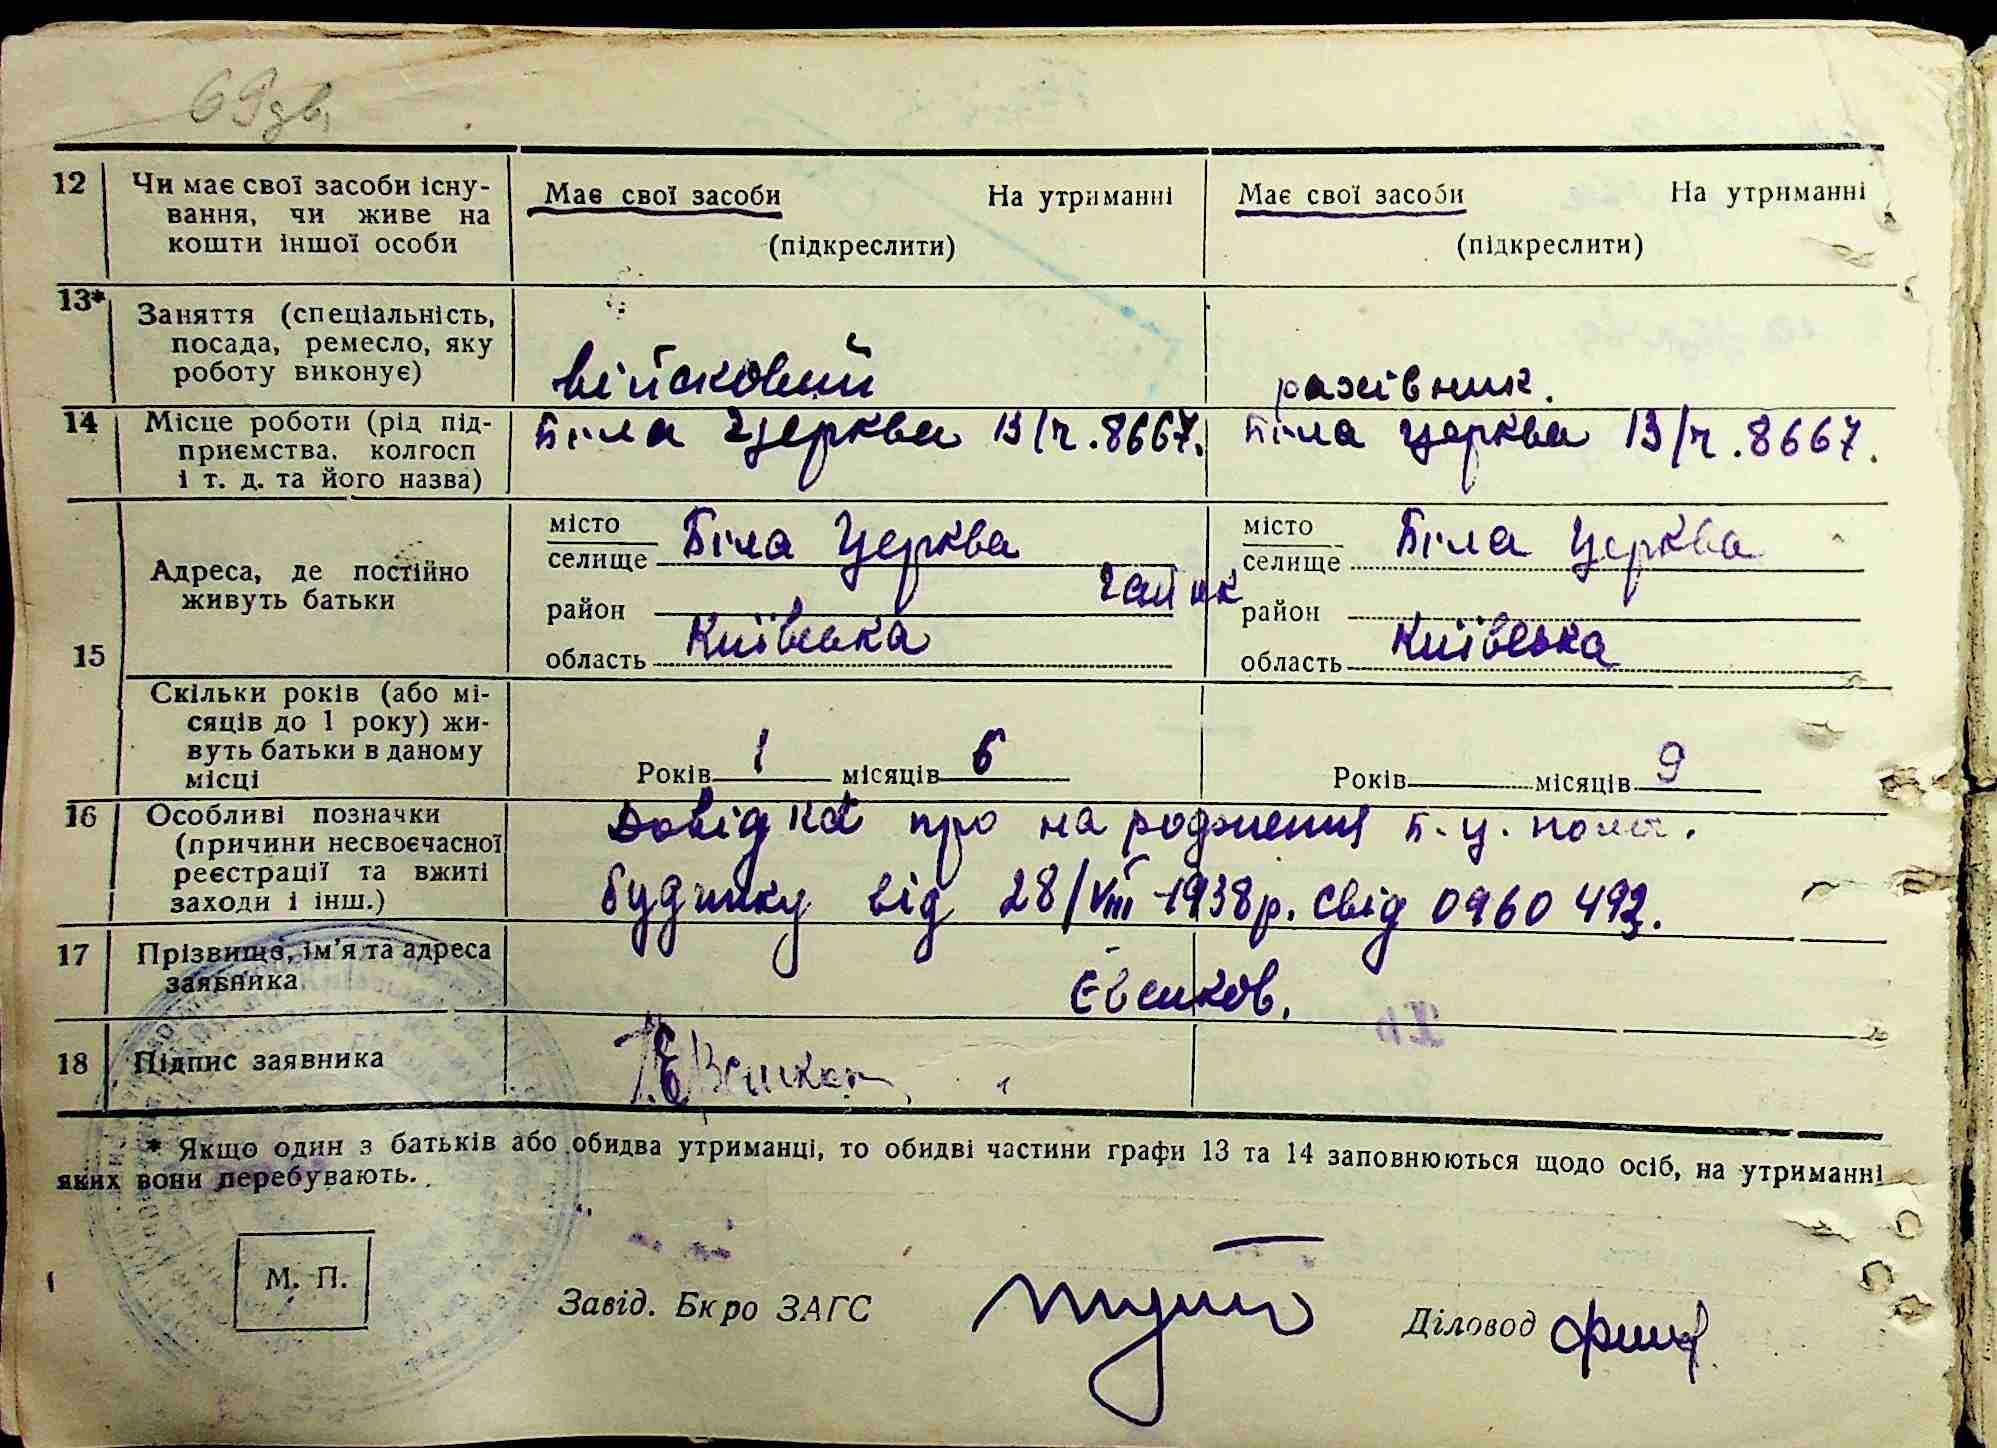 69зв.
12 Чи має свої засоби існу-
вання, чи живе на
кошти іншої особи
Має свої засоби На утриманні
(підкреслити)
Має свої засоби На утриманні
(підкреслити)
13* Заняття (спеціальність,
посада, ремесло, яку
роботу виконує)
військовий
рахівник.
14 Місце роботи (рід під-
приємства, колгосп
і т. д. та його назва)
Біла Церква В/ч. 8667.
Біла Церква В/ч. 8667.
15 Адреса, де постійно
живуть батьки
місто
селище Біла Церква
район Гайок
область Київська
місто
селище Біла Церква
район
область Київська
Скільки років (або мі-
сяців до 1 року) жи-
вуть батьки в даному
місці
Років 1 місяців 6
Років місяців 9
16 Особливі позначки
(причини несвоєчасної
реєстрації та вжиті
заходи і інш.)
Довідка про народження Б.Ц. полог.
будинку від 28/VIII-1938р. свід 0960492.
17 Прізвище, ім'я та адреса
заявника
Євсиков.
18 Підпис заявника
* Якщо один з батьків або обидва утриманці, то обидві частини графи 13 та 14 заповнюються щодо осіб, на утриманні
яких вони перебувають.
М. П.
Завід. Бюро ЗАГС
Діловод